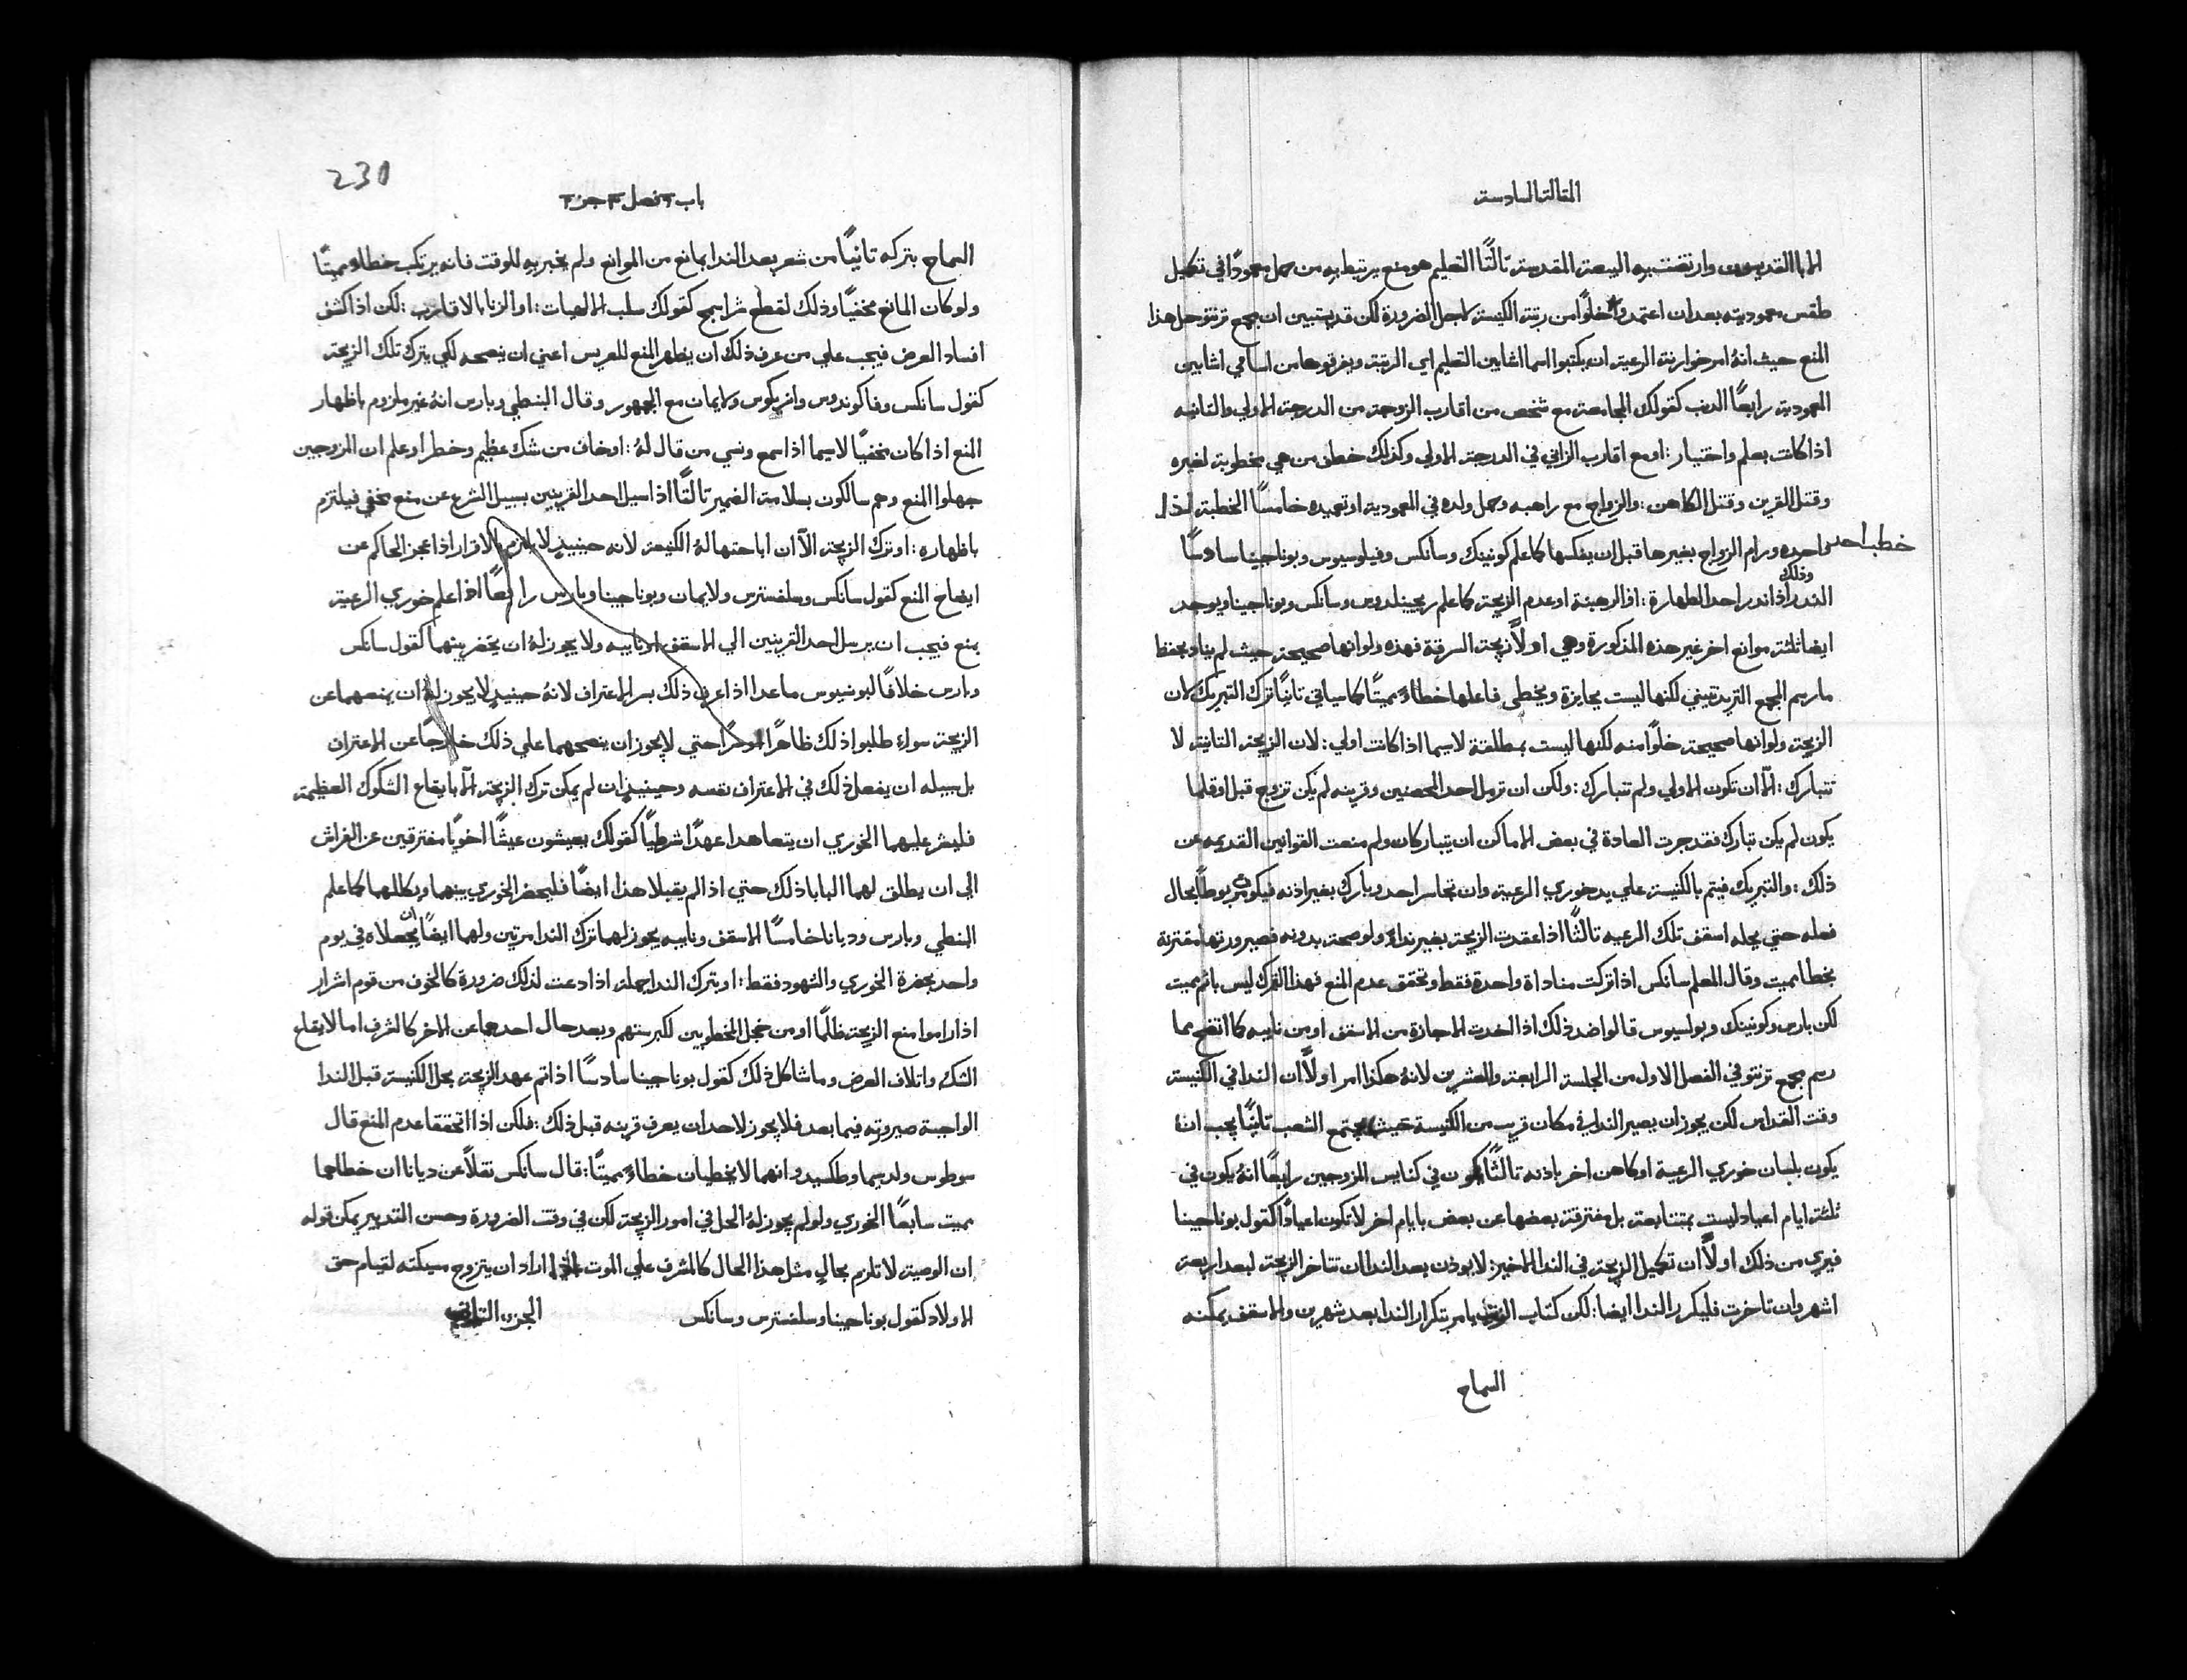 المقالة السادسة
الابا القديسون وارتضت به البيعة المقدسة ثالثًا التعليم هو منع يرتبط به من حمل معمودًا في تكميل
طقس معموديته بعد ان اعتمد خلوًا من رتبة الكنيسة لاجل الضرورة لكن قد يتبين ان مجمع ترنتو حل هذا
المنع حيث انهُ امر خوارنة الرعية ان يكتبوا اسما اشابين التعليم اي الرتبة ويفرقوها من اسامي اشابين
المعمودية رابعًا الذنب كقولك المجامعة مع شخص من اقارب الزوجة من الدرجة الاولي والثانيه
اذا كانت بعلم واختيار: او مع اقارب الزاني في الدرجة الاولي وكذلك خطف من هي مخطوبة لغيره
وقتل القرين وقتل الكاهن: والزواج مع راهبه وحمل ولده في المعمودية او تعميده خامسًا الخطبة اذا
خطب احد
واحده ورام الزواج بغيرها قبل ان يفكسها كما علم كونينك وسانكس وفيلوسيوس وبوناجينا سادسًا
وذلك
النذر اذا نذر احد الطهارة: او الرهبنة او عدم الزيجة كما علم ريجينلدوس وسانكس وبوناجينا ويوجد
ايضا ثلثة موانع اخر غير هذه المذكورة وهي اولاً زيجة السرقة فهذه ولو انها صحيحة حيث لم يناد بحفظ
ما رسم المجمع التريدنتيني لكنها ليست بجايزة ويخطي فاعلها خطاءً مميتًا كما سياتي ثانيًا ترك التبريك لان
الزيجة ولو انها صحيحة خلوًا منه لكنها ليست بمطلقة لاسيما اذا كانت اولي: لان الزيجة الثانية لا
تتبارك: الّا ان تكون الاولي ولم تتبارك: ولكن ان ترمل احد المحصنين وقرينه لم يكن تزوج قبل اوقلما
يكون لم يكن تبارك فقد جرت العادة في بعض الاماكن ان يتباركان ولم منعت القوانين القديمه عن
ذلك: والتبريك فيتم بالكنيسة علي يد خوري الرعية وان تجاسر احد وبارك بغير اذنه فيكون مربوطًا بحال
فعله حتي يحله اسقف تلك الرعيه ثالثًا اذا عقدت الزيجة بغير نداءٍ ولو صحت بدونه فصيرورتها مقترنة
بخطا مميت وقال المعلم سانكس اذا تركت مناداة واحدة فقط وتحقق عدم المنع فهذا الترك ليس باثم مميت
لكن بارس وكونينك وبولسيوس قالوا ضد ذلك اذا اخذت الاجازة من الاسقف او من نايبه كما اتضح مما
رسم مجمع ترنتو في الفصل الاول من الجلسة الرابعة والعشرين لانهُ هكذا امر اولاً ان الندا في الكنيسة
وقت القداس لكن يجوز ان يصير الندا في مكان قريب من الكنيسة حيث يجتمع الشعب ثانيًا يجب انهُ
يكون بلسان خوري الرعية او كاهن اخر باذنه ثالثًا يكون في كنايس المزوجين رابعًا انهُ يكون في
ثلثة ايام اعياد ليست بمتتابعة بل مفترقة بعضها عن بعض بايام اخر لا تكون اعيادًا كقول بوناجينا
فيري من ذلك اولاً ان تكميل الزيجة في الندا الاخير: لا يوذن بعد الندا ان تتاخر الزيجة لبعد اربعة
اشهر وان تاخرت فليكرر الندا ايضا: لكن كتاب الرتب يامر بتكرار الندا بعد شهرين والاسقف يمكنه
السماح
230
باب ٢ فصل ٣ جزء ٢
السماح بتركه ثانيًا من شعر بعد الندا بمانع من الموانع ولم يخبر به للوقت فانه يرتكب خطاءً مميتًا
ولو كان المانع مخفيًا وذلك لقطع شرا سمج كقولك سلب الالهيات: او الزنا بالاقارب: لكن اذا كشف
افساد العرض فيجب علي من عرف ذلك ان يظهر المنع للعريس اعني ان ينصحه لكي يترك تلك الزيجة
كقول سانكس وفاكوندوس وانريكوس ولايمان مع الجمهور وقال البنطي وبارس انهُ غير ملزوم باظهار
المنع اذا كان مخفيًا لاسيما اذا سمع ونسي من قال لهُ: او خاف من شك عظيم وخطر او علم ان المزوجين
جهلوا المنع وهم سالكون بسلامة الضمير ثالثًا اذا سيل احد القرينين بسبيل الشرع عن منع مخفي فيلتزم
باظهاره: او ترك الزيجة الآ ان اباحتها لهُ الكنيسة لانه حينيذٍ لا يلتزم بالاقرار اذا عجز الحاكم عن
ايضاح المنع كقول سانكس وسلفسترس ولايمان وبوناجينا وبارس رابعًا اذا علم خوري الرعية
بمنع فيجب ان يرسل احد القرينين الي الاسقف او نايبه ولا يجوز لهُ ان يحضر بينهما كقول سانكس
وبارس خلافًا لبونسيوس ما عدا اذا عرف ذلك بسر الاعتراف لانهُ حينيذٍ لا يجوز لهُ ان يمنعهما عن
الزيجة سواء طلبوا ذلك ظاهرًا او سرًا حتي لا يجوز ان ينصحهما علي ذلك خارجًا عن الاعتراف
بل سبيله ان يفعل ذلك في الاعتراف نفسه وحينيذٍ ان لم يمكن ترك الزيجة الآ بايقاع الشكوك العظيمة
فليشر عليهما الخوري ان يتعاهدا عهدًا شرطيًا كقولك يعيشون عيشًا اخويًا مفترقين عن الفراش
الي ان يطلق لهما البابا ذلك حتي اذا لم يقبلا هذا ايضًا فليحضر الخوري بينهما ويكللهما كما علم
البنطي وبارس وديانا خامسًا الاسقف ونايبه يجوز لهما ترك الندا مرتين ولهما ايضًا ان يجعلاه في يوم
واحد بحضرة الخوري والشهود فقط: او بترك الندا جملة اذا دعت لذلك ضرورة كالخوف من قوم اشرار
اذا راموا منع الزيجة ظلمًا او من خجل المخطوبين لكبر سنهم وبعد حال احدهما عن الاخر كالشرف اما لايقاع
الشك واتلاف العرض وما شاكل ذلك كقول بوناجينا سادسًا اذا تم عهد الزيجة بحل الكنيسة قبل الندا
الواجبة صيرورته فيما بعد فلا يجوز لاحد ان يعرف قرينه قبل ذلك: فلكن اذا اتحققا عدم المنع قال
سوطوس ولديسما وطلكسيدو انهما لا يخطيان خطاءً مميتًا: قال سانكس نقلاً عن ديانا ان خطاهما
مميت سابعًا الخوري ولو لم يجوز لهُ الحل في امور الزيجة لكن في وقت الضرورة وحسن التدبير يمكن قوله
ان الوصية لا تلزم بحالٍ مثل هذا الحال كالمشرف علي الموت اذا اراد ان يتزوج سيكته لقيام حق
الاولاد كقول بوناجينا وسلفسترس وسانكس الجزء الثالث